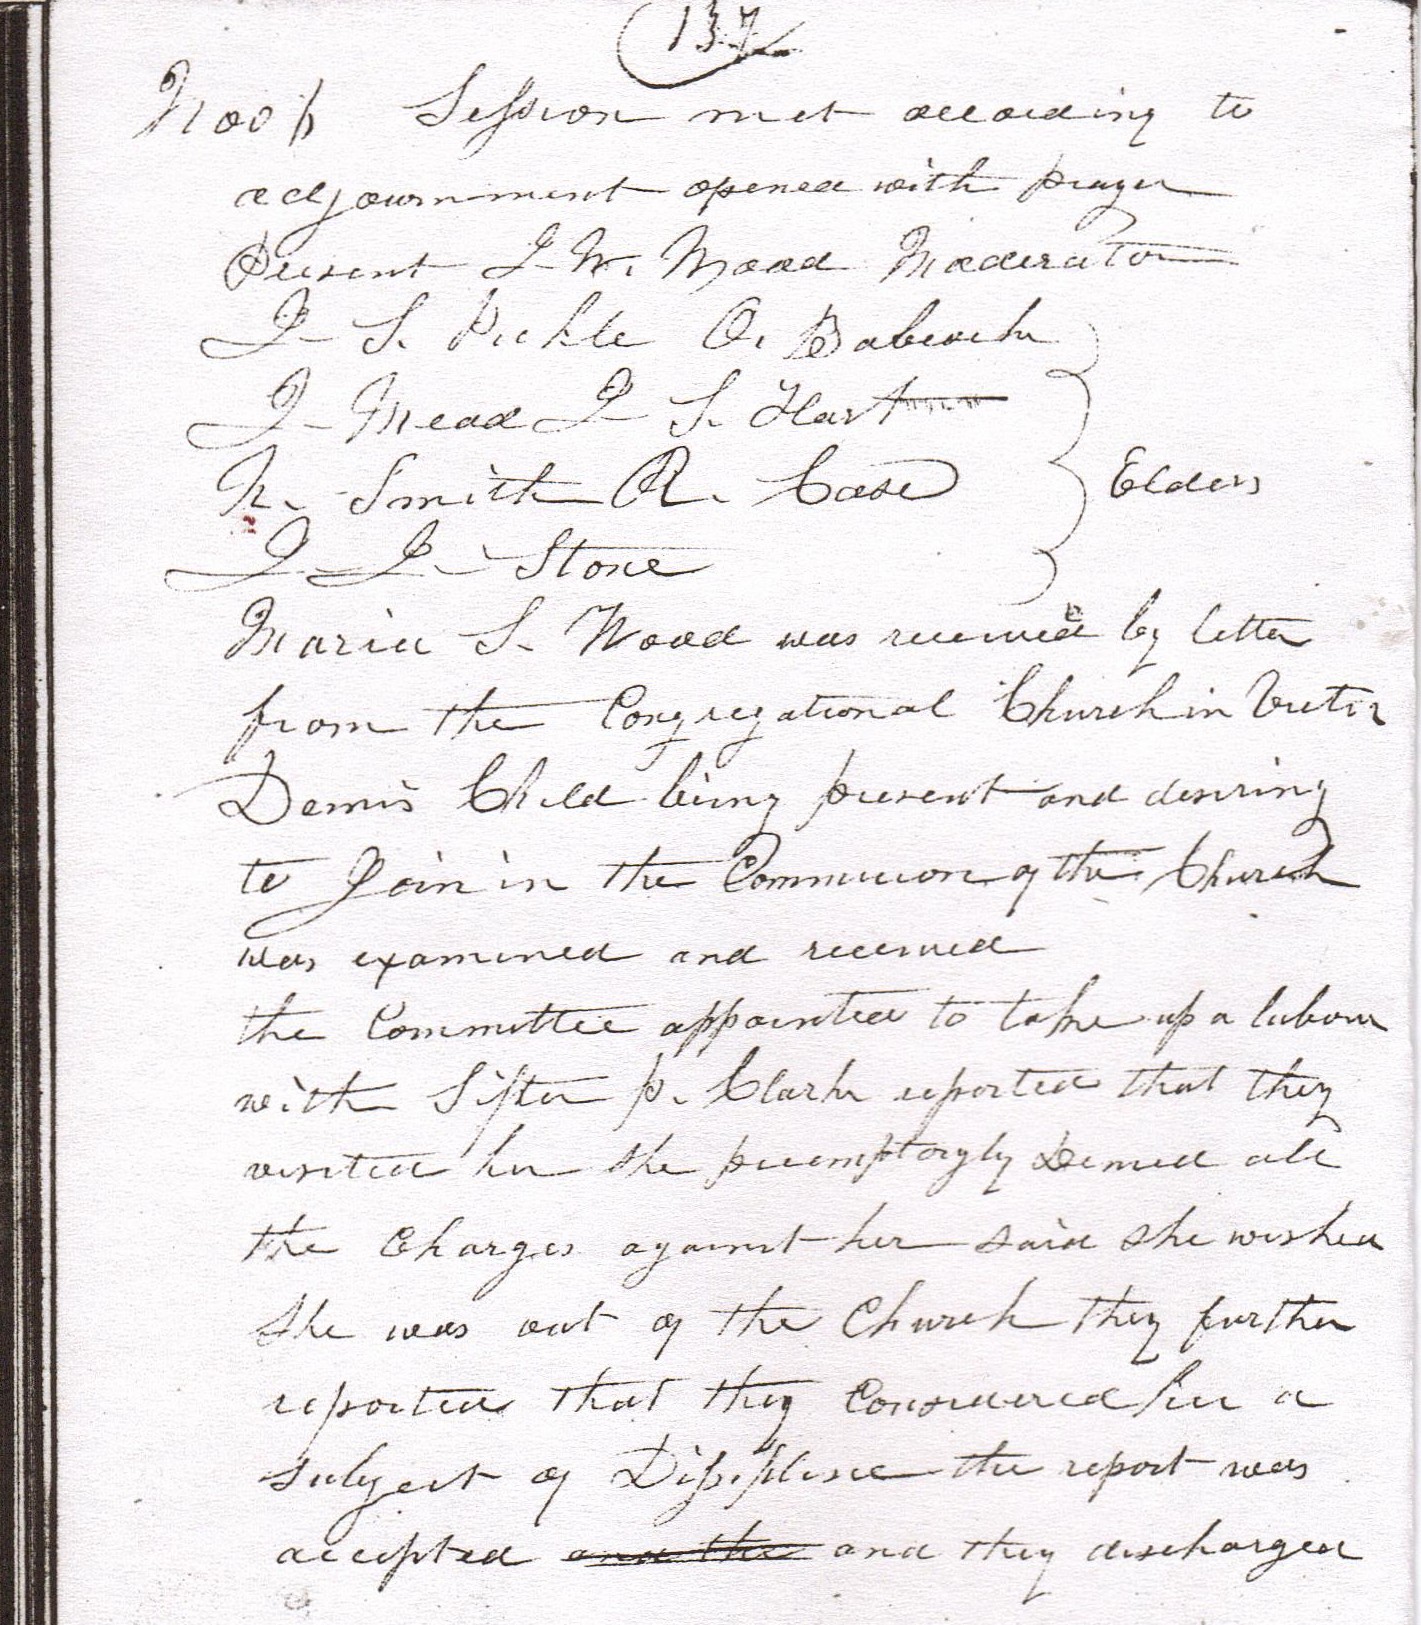 137
Session met according to
adjournment opened with prayer
Present J. W. Wood Moderator
J. S. Pickle O. Babcock
J. Mead J. S. Hart
N. Smith R. Case Elders
J. J. Stone
Maria S. Wood was received by letter
from the Congregational Church in Victor
Denis Child being present and desiring
to Join in the Communion of the Church
was examined and received
the Committee appointed to take up a labour
with Sister P. Clark reported that they
visited her she preemptoryly Denied all
the Charges against her said she wished
she was out of the Church they further
reported that they Considered her a
subject of Dissipline the report was
accepted and the and they discharged